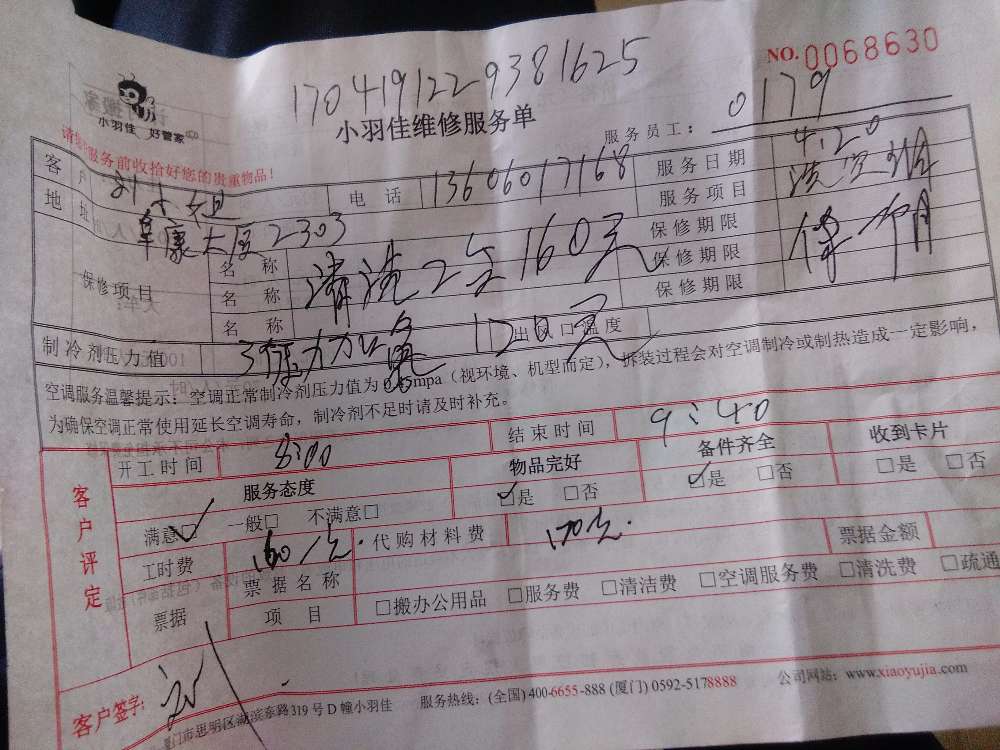 NO.0068630
170419122 9381625
小羽佳 好管家
小羽佳维修服务单
服务员工: 0179
服务前收拾好您的贵重物品!
客户 刘小姐 电话 13606017168 服务日期 4.20
地址 阜康大厦2303 服务项目 洗空调
保修项目 名称 清洗2台160元 保修期限 保一个月
名称 保修期限
名称 保修期限
制冷剂压力值 出风口温度 170元
空调服务温馨提示:空调正常制冷剂压力值为0.45mpa(视环境、机型而定),拆装过程会对空调制冷或制热造成一定影响,
为确保空调正常使用延长空调寿命,制冷剂不足时请及时补充。
客户评定
开工时间 8:00 结束时间 9:40
服务态度 物品完好 备件齐全 收到卡片
满意□✓ 一般□ 不满意□ ☑是 □否 ☑是 □否 □是 □否
工时费 160/元. 代购材料费 170元. 票据金额
票据 票据名称 □搬办公用品 □服务费 □清洁费 □空调服务费 □清洗费 □疏通
项目
客户签字: 刘
厦门市思明区湖滨东路319号D幢小羽佳 服务热线:(全国)400-6655-888 (厦门) 0592-5178888 公司网站:www.xiaoyujia.com